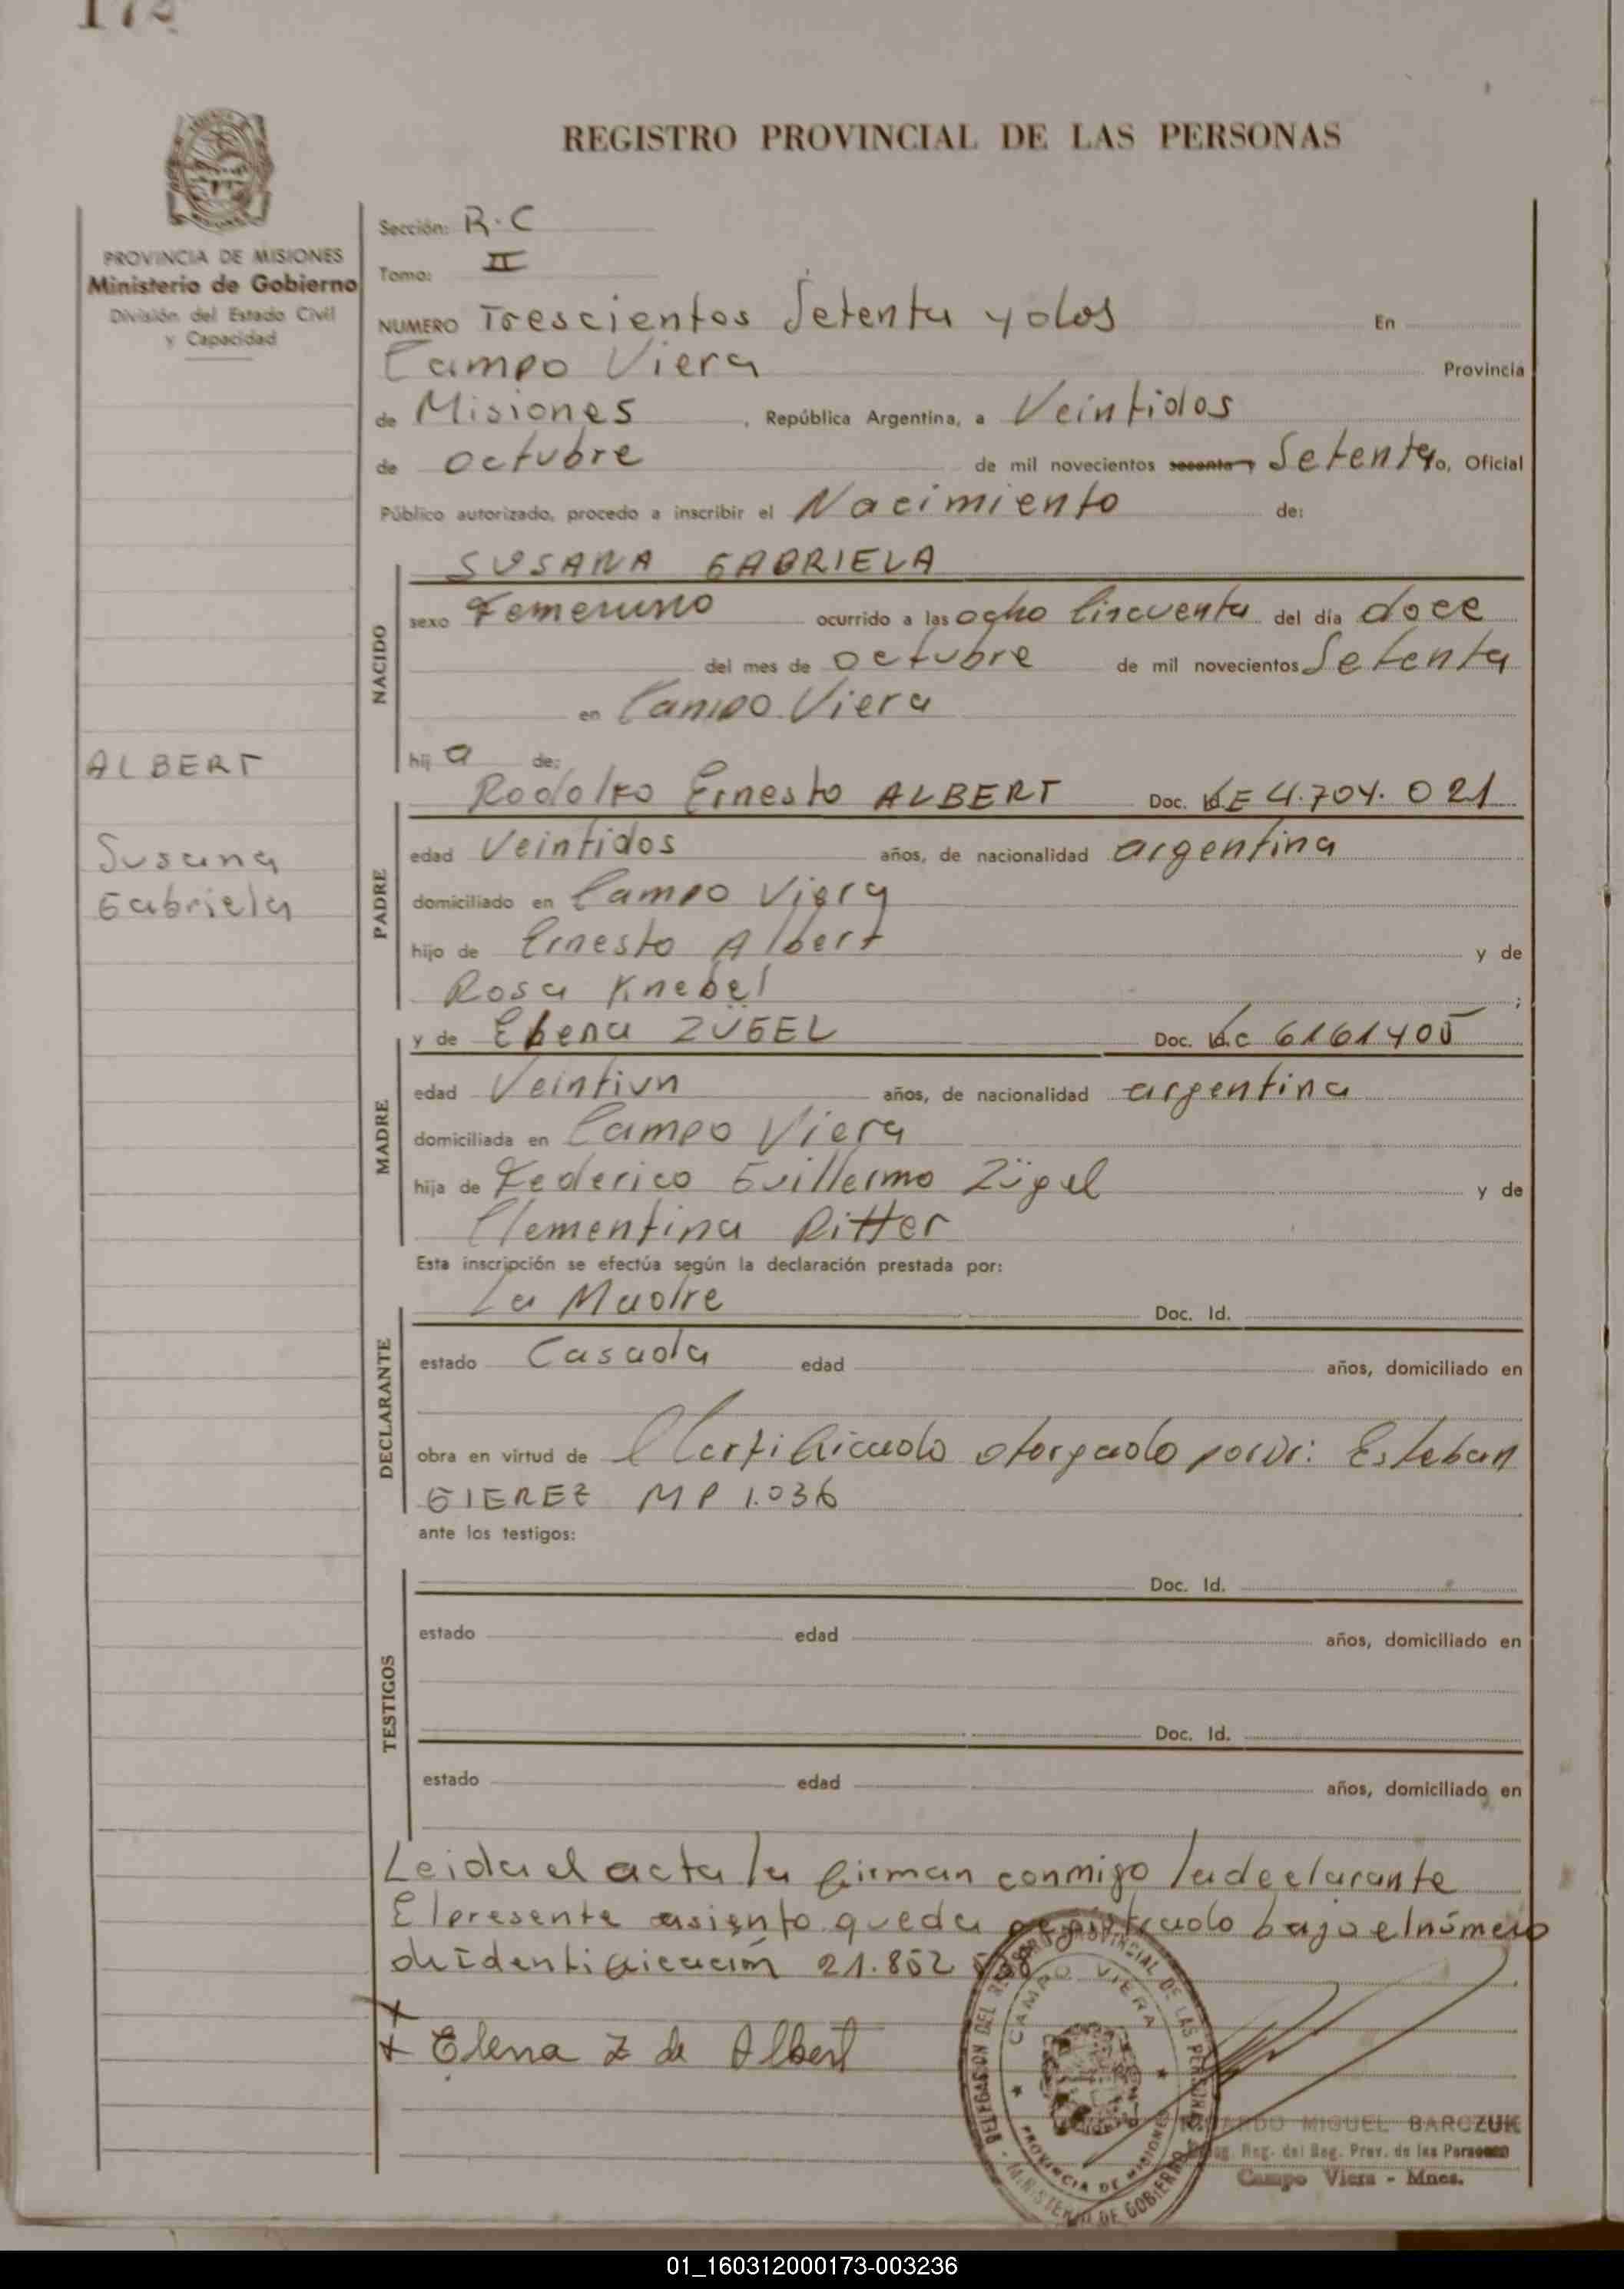 172
REGISTRO PROVINCIAL DE LAS PERSONAS
PROVINCIA DE MISIONES
Ministerio de Gobierno
División del Estado Civil
y Capacidad
Sección: R.C
Tomo: II
NUMERO Trescientos Setenta y dos En
Campo Viera Provincia
de Misiones, República Argentina, a Veintidos
de octubre de mil novecientos sesenta y Setenta, Oficial
Público autorizado, procedo a inscribir el Nacimiento de:
NACIDO
SUSANA GABRIELA
sexo Femenino ocurrido a las ocho Cincuenta del día doce
del mes de octubre de mil novecientos Setenta
en Campo Viera
hija de:
ALBERT
Susana
Gabriela
PADRE
Rodolfo Ernesto ALBERT Doc. Id. E 4.704.021
edad Veintidos años, de nacionalidad argentina
domiciliado en Campo Viera
hijo de Ernesto Albert y de
Rosa Knebel;
MADRE
y de Elena ZÜGEL Doc. Id. C 6161400
edad Veintiun años, de nacionalidad argentina
domiciliada en Campo Viera
hija de Federico Guillermo Zügel y de
Clementina Ritter
Esta inscripción se efectúa según la declaración prestada por:
DECLARANTE
La Madre Doc. Id.
estado Casada edad años, domiciliado en
obra en virtud de Certificado otorgado por Dr: Esteban
GIEREZ MP 1.036
ante los testigos:
TESTIGOS
Doc. Id.
estado edad años, domiciliado en
Doc. Id.
estado edad años, domiciliado en
Leida el acta la firman conmigo la declarante
El presente asiento queda registrado bajo el número
de identificación 21.852
Elena Z de Albert
DELEGACION DEL REGISTRO PROVINCIAL DE LAS PERSONAS
CAMPO VIERA
PROVINCIA DE MISIONES
MINISTERIO DE GOBIERNO
MIGUEL BARCZUK
Reg. del Reg. Prov. de las Personas
Campo Viera - Mnes.
01_160312000173-003236